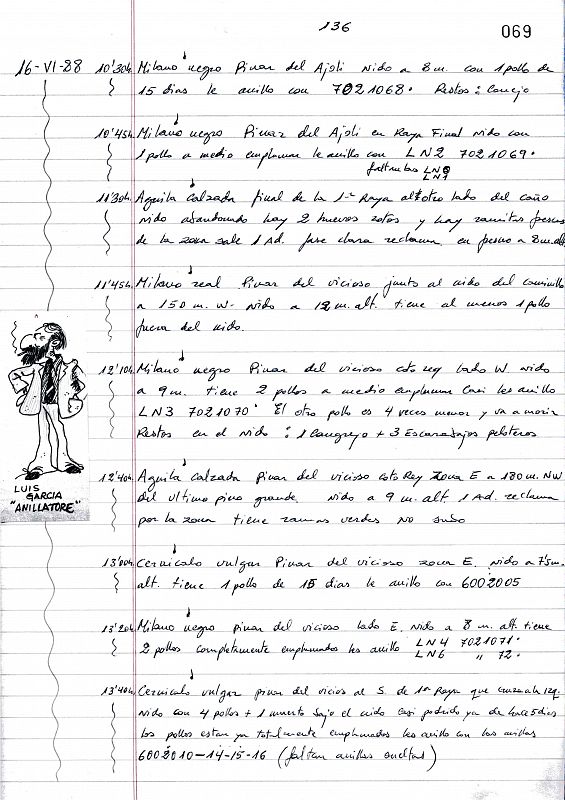 136
069
16-VI-88 10'30h. Milano negro Pinar del Ajoli nido a 8 m. con 1 pollo de
15 dias le anillo con 7021068. Restos: Conejo
10'45h. Milano negro Pinar del Ajoli en Raya Final nido con
1 pollo a medio emplumar le anillo con LN2 7021069.
faltan las LN0
LN1
11'30h. Aguila calzada final de la 1ª Raya al otro lado del caño
nido abandonado hay 2 huevos rotos y hay ramitas frescas
de la zona sale 1 Ad. fase clara reclama en fresno a 8 m. alt.
11'45h. Milano real Pinar del vicioso junto al nido del
a 150 m. W- nido a 12 m. alt. tiene al menos 1 pollo
fuera del nido.
12'10h. Milano negro Pinar del vicioso coto Rey lado W nido
a 9 m. tiene 2 pollos a medio emplumar casi les anillo
LN3 7021070. El otro pollo es 4 veces menor y va a morir
Restos en el nido: 1 Cangrejo + 3 Escarabajos peloteros
12'40h. Aguila calzada Pinar del vicioso coto Rey Zona E a 180 m. NW
del ultimo pino grande. nido a 9 m. alt. 1 Ad. reclama
por la zona tiene ramas verdes No subo
13'00h. Cernicalo vulgar Pinar del vicioso zona E. nido a 7'5 m.
alt. tiene 1 pollo de 15 dias le anillo con 6002005
13'20h. Milano negro pinar del vicioso lado E. nido a 8 m. alt. tiene
2 pollos completamente emplumados les anillo LN4 7021071.
LN6 " 72.
13'40h. Cernicalo vulgar pinar del vicios al S. de 1ª Raya que cruza a la izq.
nido con 4 pollos + 1 muerto bajo el nido casi podrido ya de hace 5 dias
los pollos estan ya totalmente emplumados les anillo con las anillas
6002010-14-15-16 (faltan anillas sueltas)
LUIS
GARCIA
"ANILLATORE"